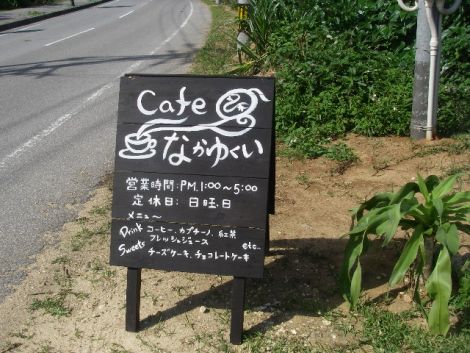 Cafe
なかゆくい
営業時間:PM.1:00～5:00
定休日:日曜日
メニュー
Drink コーヒー、カプチーノ、紅茶
フレッシュジュース etc.
Sweets チーズケーキ、チョコレートケーキ